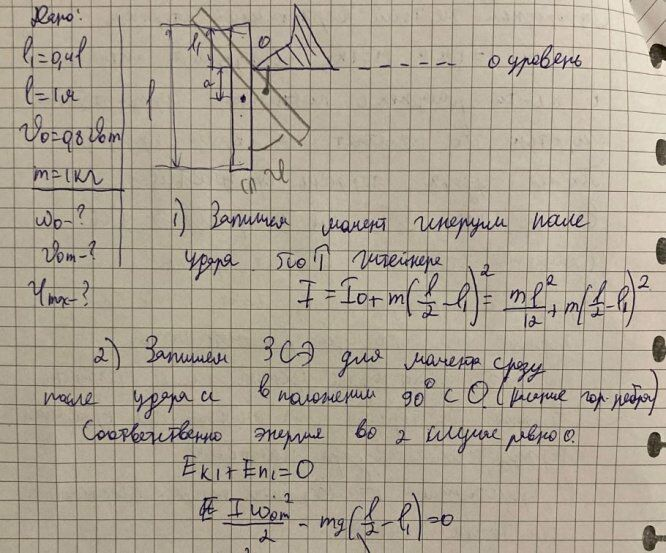 Дано:
l₁=0,4l
l=1м
V₀=0,8V₀m
m=1кг
ω₀-?
V₀m-?
φmax-?
l
l₁
a
O
m
φ
0 уровень
1) Запишем момент инерции после
удара по Т Штейнера
I = I₀ + m(l/2 - l₁)² = ml²/12 + m(l/2 - l₁)²
2) Запишем ЗСЭ для момента сразу
после удара и в положении 90° с O. (касание гор. ребра)
Соответственно энергия во 2 случае равно 0.
Eк₁+Eп₁=0
Iω₀m²/2 - mg(l/2 - l₁)=0